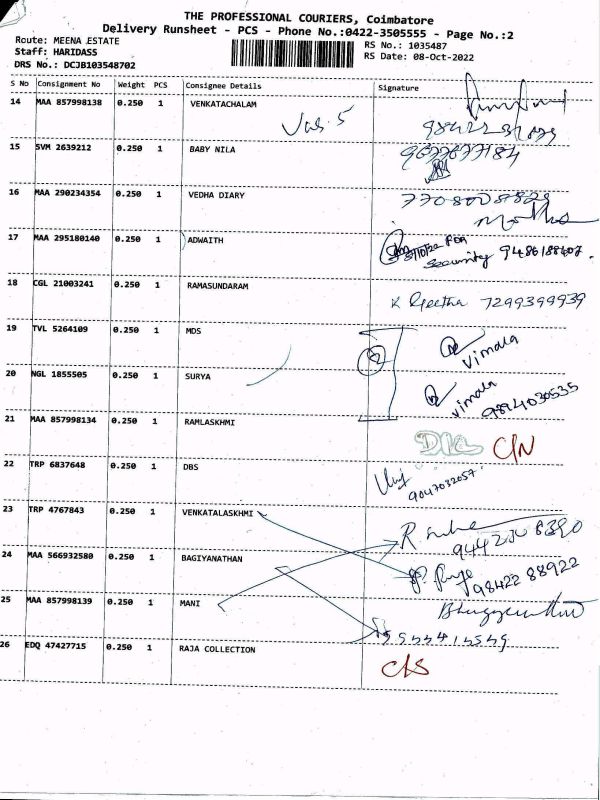 THE PROFESSIONAL COURIERS, Coimbatore
Delivery Runsheet - PCS - Phone No.:0422-3505555 - Page No.:2
Route: MEENA ESTATE
Staff: HARIDASS
DRS No.: DCJB103548702
RS No.: 1035487
RS Date: 08-Oct-2022
S No Consignment No Weight PCS Consignee Details Signature
14 MAA 857998138 0.250 1 VENKATACHALAM
15 SVM 2639212 0.250 1 BABY NILA 9677677184
16 MAA 290234354 0.250 1 VEDHA DIARY
17 MAA 295180140 0.250 1 ADWAITH
Security 9486188407.
18 CGL 21003241 0.250 1 RAMASUNDARAM
K Geetha 7299399939
19 TVL 5264109 0.250 1 MDS
Vimala
20 NGL 1855505 0.250 1 SURYA
Vimala 9894030535
21 MAA 857998134 0.250 1 RAMLASKHMI
C/N
22 TRP 6837648 0.250 1 DBS
9047032057.
23 TRP 4767843 0.250 1 VENKATALASKHMI
24 MAA 566932580 0.250 1 BAGIYANATHAN
98422 88922
25 MAA 857998139 0.250 1 MANI
26 EDQ 47427715 0.250 1 RAJA COLLECTION
C/S